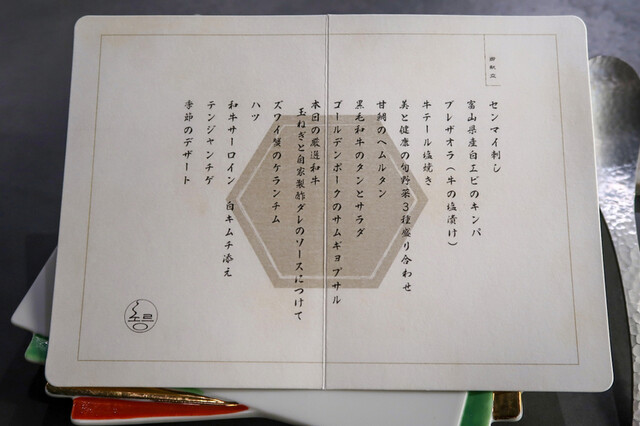 御献立
センマイ刺し
富山県産白エビのキンパ
ブレザオラ(牛の塩漬け)
牛テール塩焼き
美と健康の旬野菜3種盛り合わせ
甘鯛のヘムルタン
黒毛和牛のタンとサラダ
ゴールデンポークのサムギョプサル
本日の厳選和牛
玉ねぎと自家製酢ダレのソースにつけて
ハツ
ズワイ蟹のケランチム
和牛サーロイン 白キムチ添え
テンジャンチゲ
季節のデザート